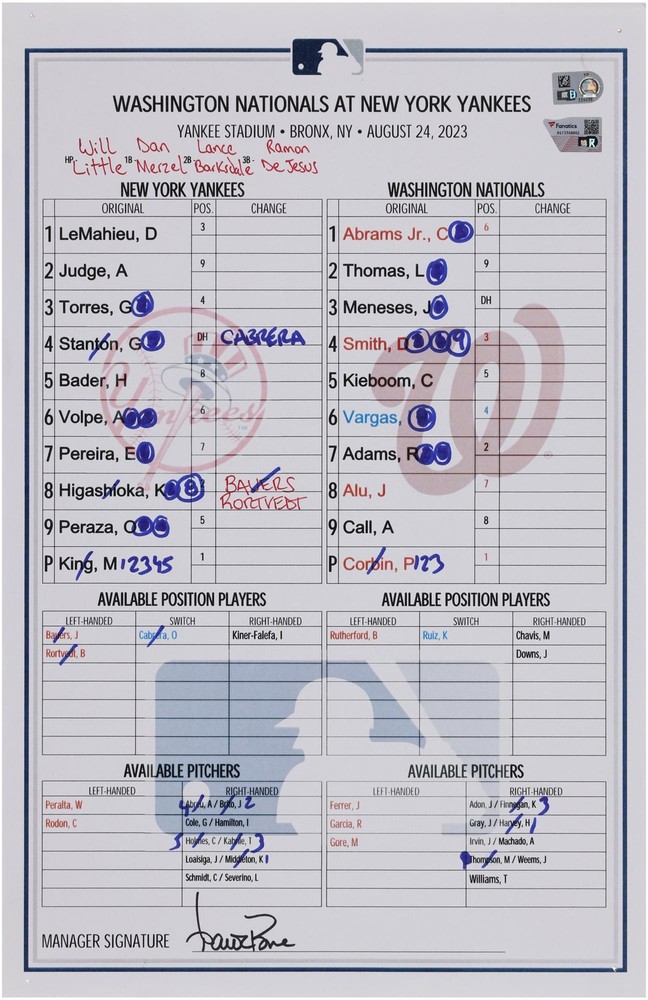 WASHINGTON NATIONALS AT NEW YORK YANKEES
YANKEE STADIUM • BRONX, NY • AUGUST 24, 2023
Will Dan Lance Ramon
HP- Little 1B- Merzel 2B- Barksdale 3B- De Jesus
NEW YORK YANKEES
ORIGINAL POS. CHANGE
1 LeMahieu, D 3
2 Judge, A 9
3 Torres, G 4
4 Stanton, G DH CABRERA
5 Bader, H 8
6 Volpe, A 6
7 Pereira, E 7
8 Higashioka, K BAUERS
RORTVEDT
9 Peraza, O 5
P King, M 12345 1
WASHINGTON NATIONALS
ORIGINAL POS. CHANGE
1 Abrams Jr., C 6
2 Thomas, L 9
3 Meneses, J DH
4 Smith, D 9 3
5 Kieboom, C 5
6 Vargas, 4
7 Adams, R 2
8 Alu, J 7
9 Call, A 8
P Corbin, P 123 1
AVAILABLE POSITION PLAYERS
LEFT-HANDED SWITCH RIGHT-HANDED
Bauers, J Cabrera, O Kiner-Falefa, I
Rortvedt, B
AVAILABLE POSITION PLAYERS
LEFT-HANDED SWITCH RIGHT-HANDED
Rutherford, B Ruiz, K Chavis, M
Downs, J
AVAILABLE PITCHERS
LEFT-HANDED RIGHT-HANDED
Peralta, W 4 Abreu, A / Brito, J 2
Rodon, C Cole, G / Hamilton, I
5 Holmes, C / Kahnle, T 3
Loaisiga, J / Middleton, K 1
Schmidt, C / Severino, L
AVAILABLE PITCHERS
LEFT-HANDED RIGHT-HANDED
Ferrer, J Adon, J / Finnegan, K 3
Garcia, R Gray, J / Harvey, H 1
Gore, M Irvin, J / Machado, A
Thompson, M / Weems, J
Williams, T
MANAGER SIGNATURE
Yankees
W
Fanatics